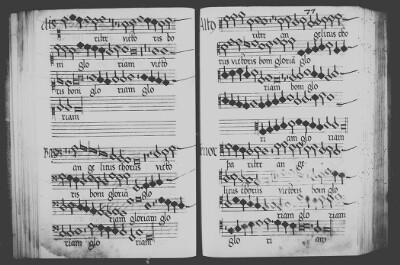 tis ritir victo ris bo
ni glo riam victo
ris boni gloriam glo
riam
Bas an ge litus chorus victo
ris boni gloria glo
riam gloriam glo
riam glo riam
77
Alto ritir an gelitus cho
rus victoris boni gloria glo
riam boni glo
ri am glo riam
enor pa ritir an ge
litus chorus victoris boni glo
riam glo riam
glo ri am